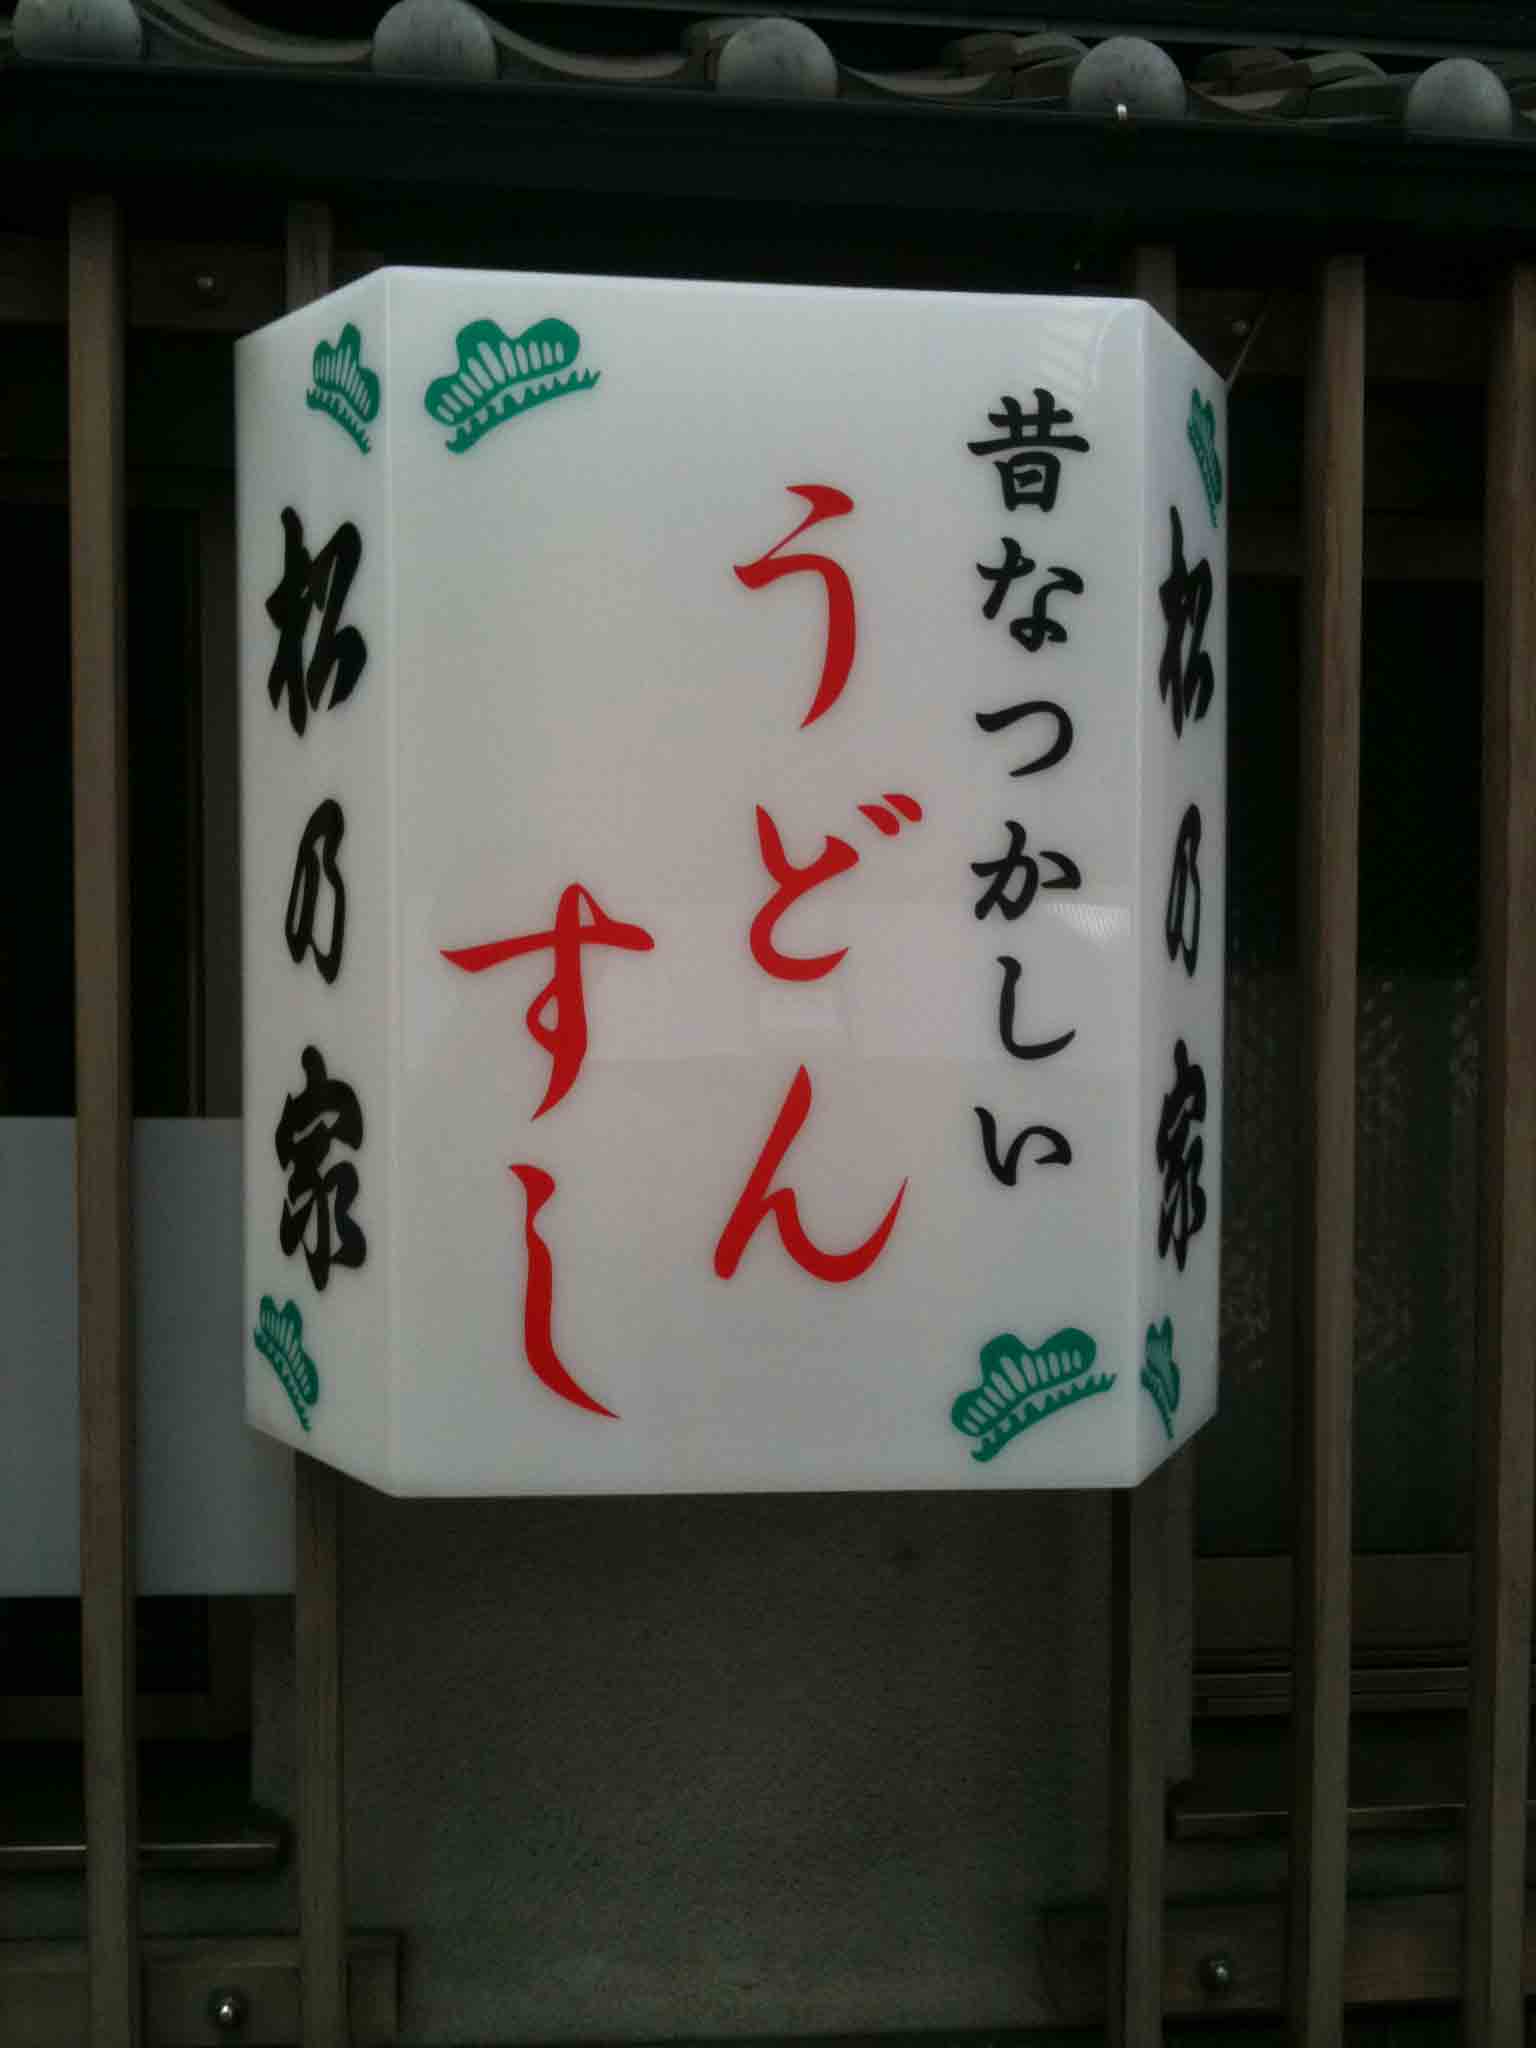 昔なつかしい
うどん
すし
松乃家
松乃家